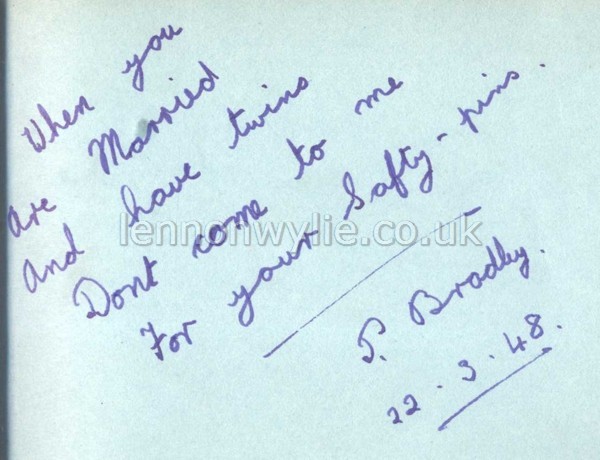 When you
are Married
And have twins
Dont come to me
For your Safty-pins.
P. Bradley.
22.3.48.
lennonwylie.co.uk